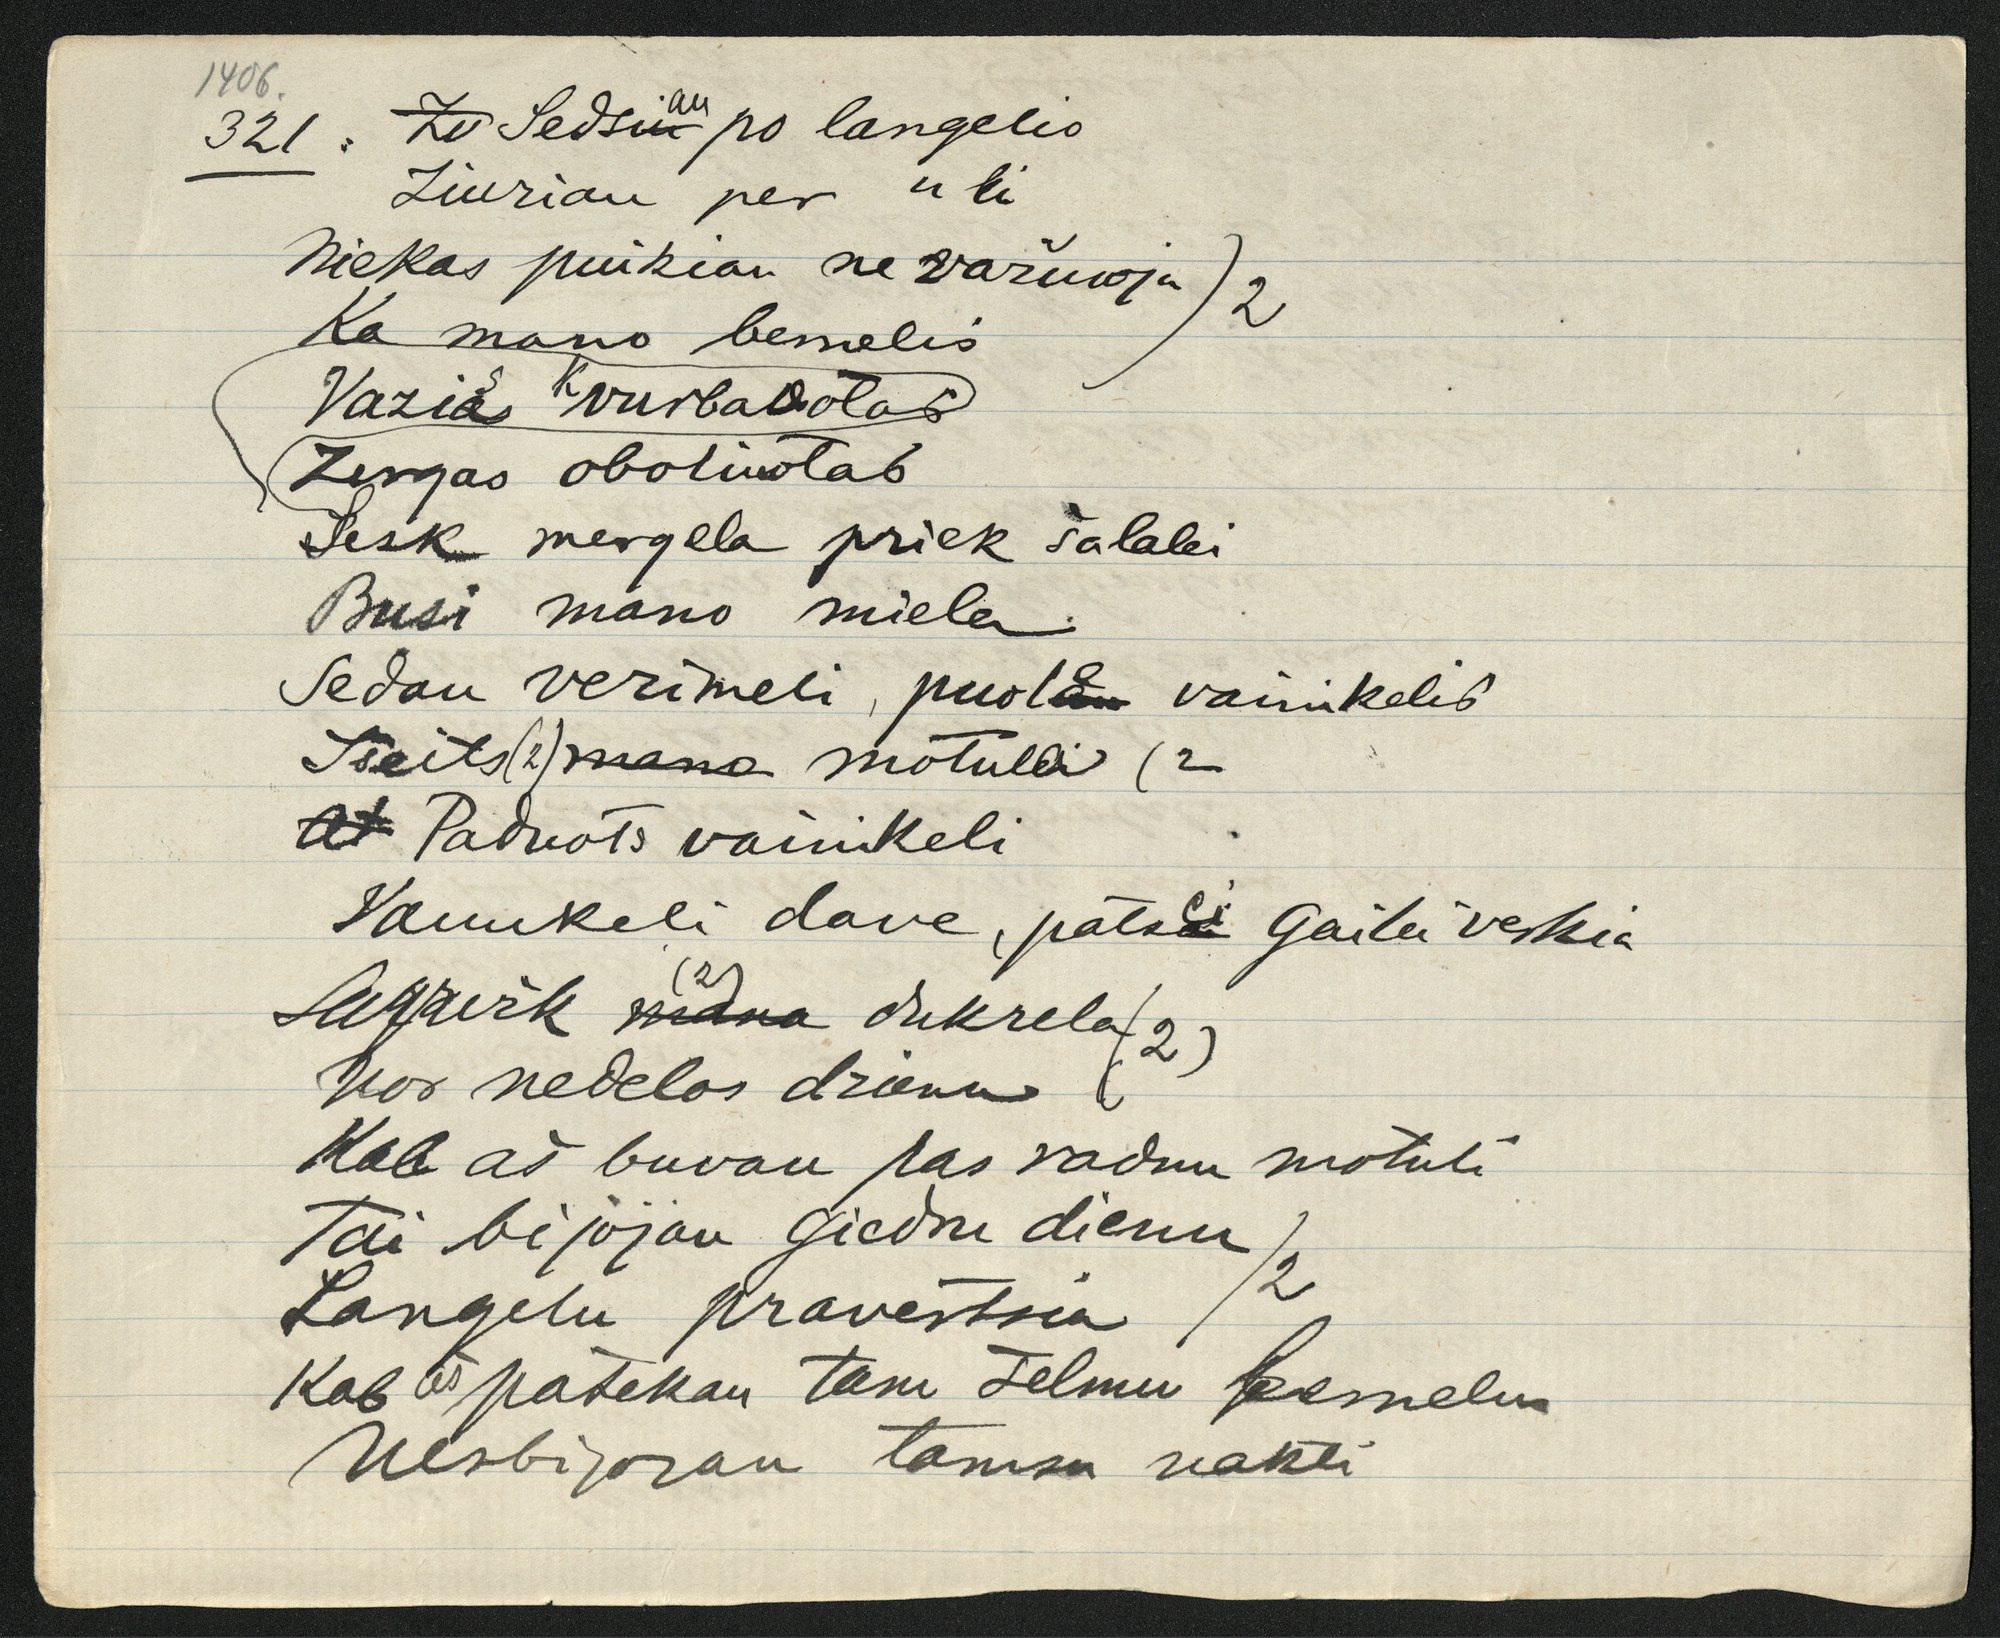 1406.
321. Žu Sedsiu au po langelio
Žiuriau per uli
Niekas puikiau ne važuoja )2
Ka mano bernelis
Vaziės Kvurbavotas
Zergas obolinotas
Sesk mergela priek šalalei
Busi mano miela.
Sedau verimeli, puolė vainikelis
Iseits (2) mano motulei (2
At Paduots vainikeli
Vainikeli dave, patsei Gailei verkia
Sugrųsk (2) mana dukrela (2)
Nor nedelos dzienu
Kab aš buvau pas radnu motuli
Tai bijojau Giednu dienu )2
Langelu pravertsia
Kab aš patekau tam šelmu bernelu
Nesbijojau tamsu nakti